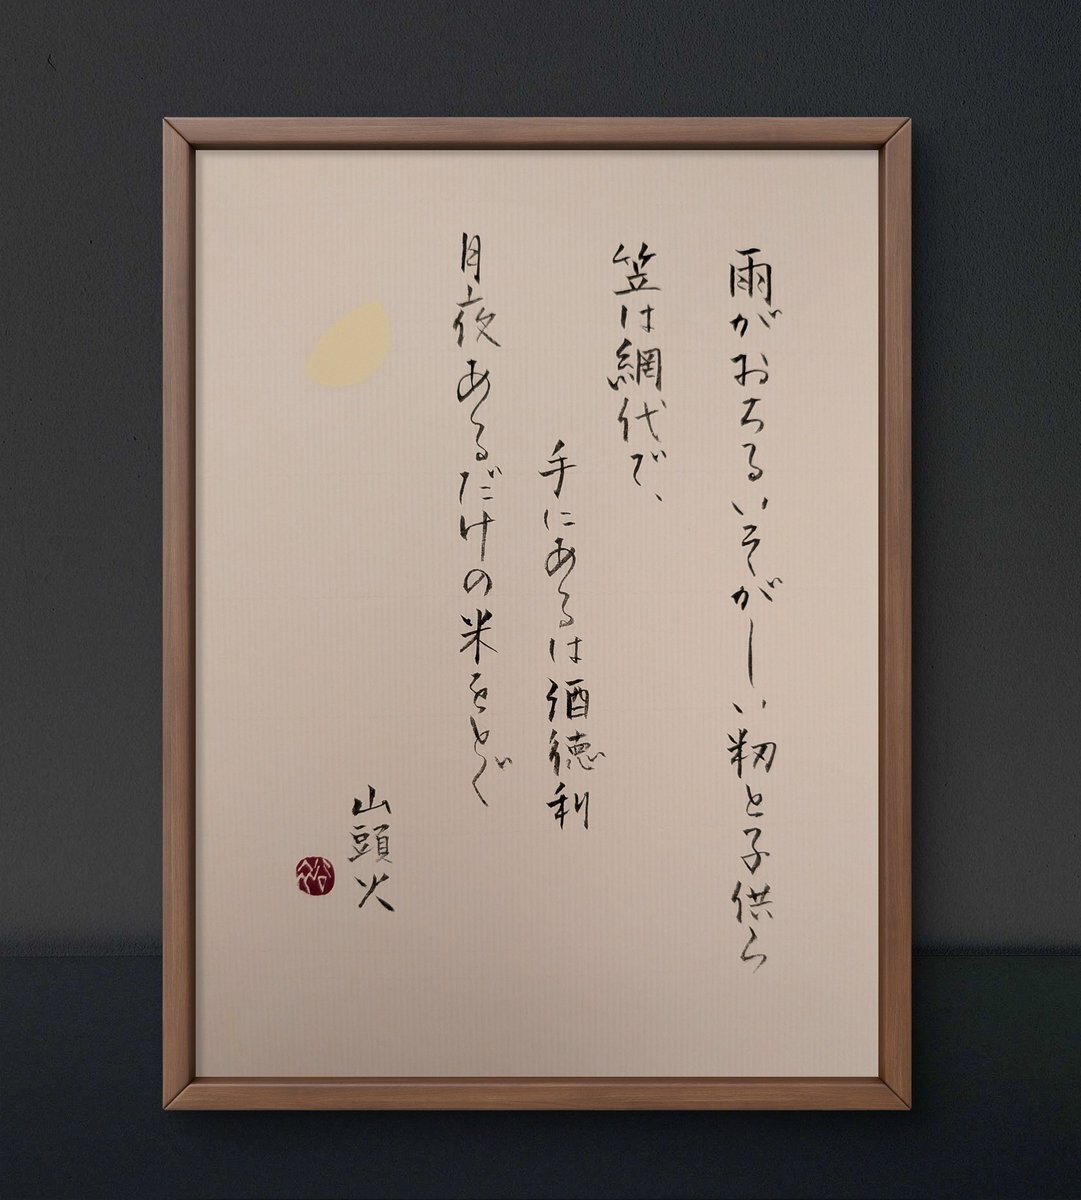 雨がおちるいそがしい籾と子供ら
笠は網代で、
手にあるは酒徳利
月夜あるだけの米をとぐ
山頭火